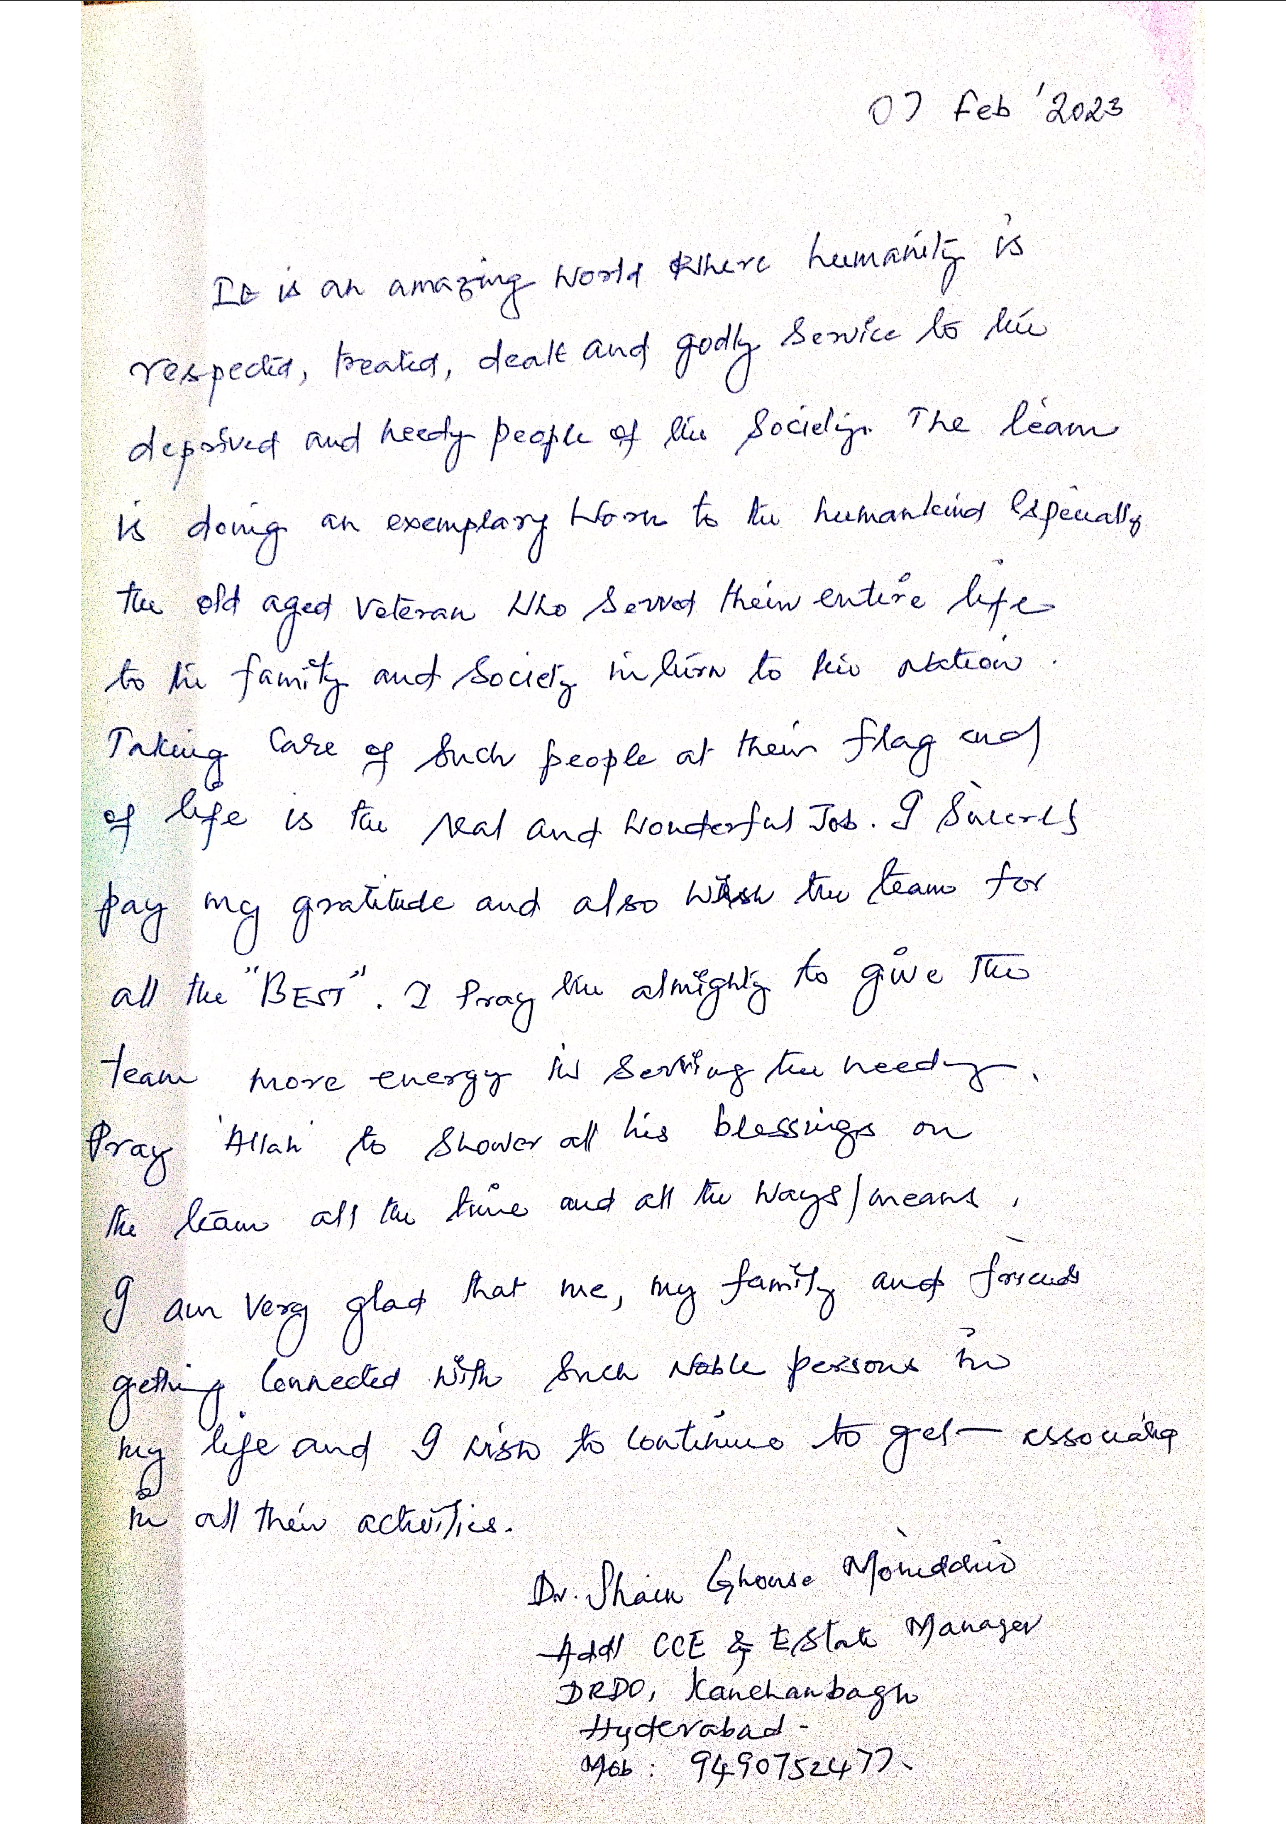 07 Feb '2023
It is an amazing World Where humanity is
respected, treated, dealt and godly service to the
deprived and needy people of the Society. The team
is doing an exemplary Work to the humankind especially
the old aged veteran Who served their entire life
to the family and Society in turn to the Nation.
Taking Care of such people at their flag end
of life is the real and Wonderful Job. I Sincerely
pay my gratitude and also Wish the team for
all the "BEST". I Pray the almighty to give the
team more energy in serving the needy.
Pray 'Allah' to Shower all his blessings on
the team all the time and all the Ways/means.
I am Very glad that me, my family and friends
getting Connected With Such Noble persons in
my life and I wish to Continue to get associating
in all their activities.
Dr. Shaik Ghouse Moinuddin
Addl CCE & Estate Manager
DRDO, Kanchanbagh
Hyderabad -
Mob : 9490752477.